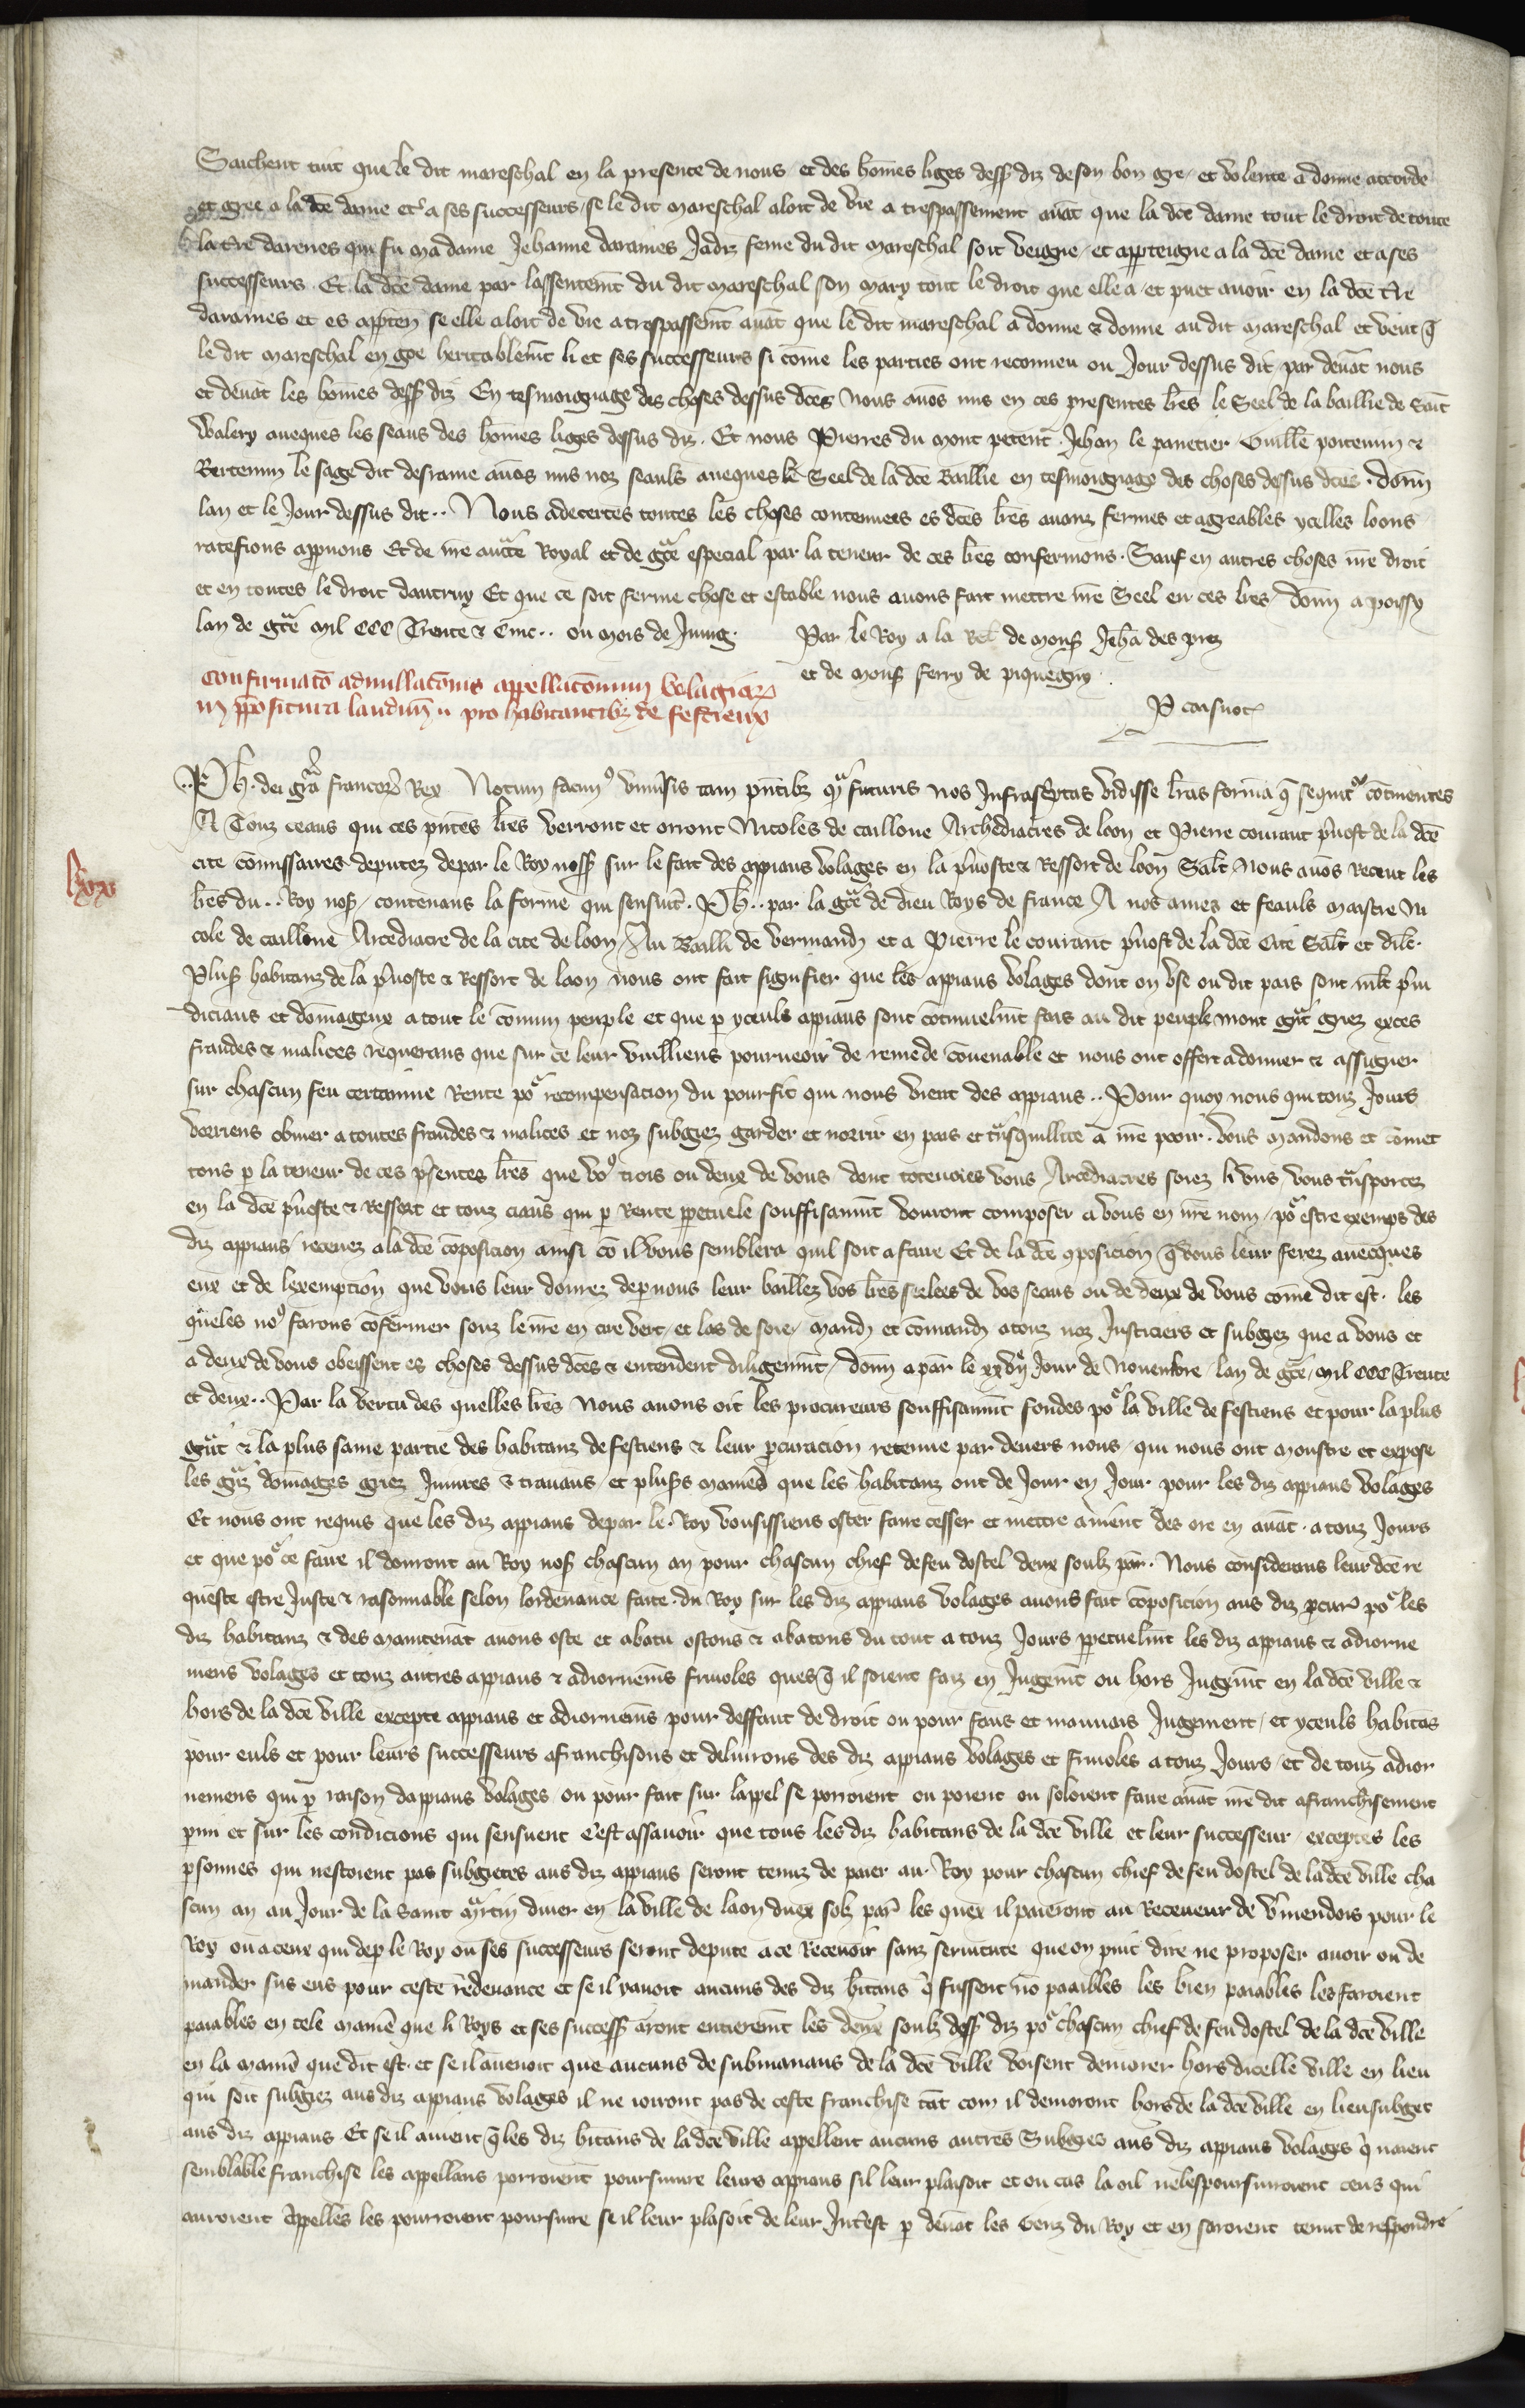 Saichent tuit que le dit mareschal en la presente de nous et des hom̃es liges dess9 diz de son bon gre et volente a donne accorde
et gree a la dc̃e dame et a ses successeurs se le dit mareschal aloit de vie a trespassement auãt que la dc̃e dame tout le droit de toute
la tr̃e daraines qui fu ma dame Jehanne daraines Jadiz feme du dit mareschal soit veigne et apꝑteigne a la dc̃e dame et a ses
successeurs. Et la dc̃e dame par lassentem̃t du dit mareschal son mary tout le droit que elle a et puet auoir en la dc̃e tr̃e
daraines et es appten̄ se elle aloit de vie a trespassem̃t auãt que le dit mareschal a donne & donne au dit mareschal et veut q̃
le dit mareschal en goe heritablem̃t li et ses successeurs si come les parties ont reconneu ou Jour dessus dit par deuãt nous
et deuãt les hom̃es dess9 diz En tesmoignage des choses dessus dc̃es Nous auõs mis en ces presentes lr̃es le Seel de la baillie de Saĩt
Walery aueques les seaus des hom̃es liges dessus diz. Et nous Pierres du mont Jehan le panetier Guill̃e poiteuin &
Bertemin le sage dit desrame auõs mis noz seauls aueques le Seel de la dc̃e Baillie en tesmoignage des choses dessus dc̃es. donn̄
lan et le Jour dessus dit.. Nous adecertes toutes les choses contenues es dc̃es lr̃es auanz fermes et agreables ycelles loons
ratefions appuons Et de nr̃e auct̃e Royal et de gr̃ce especial par la teneur de ces lr̃es confermons. Sauf en autres choses nr̃e droit
et en toutes le droit dautruy Et que ce soit ferme chose et estable nous auons fait mettre nr̃e Seel en ces lr̃es donn̄ a poissy
lan de gr̃ce mil CCC Trente & Cinc.. ou mois de Juing. Par le Roy a la Rel̃ de mons9 Jeh̃a des prez
et de mons9 ferry de piquegny
confirmato adnullatõnis appellatõnum volagiar̃
in ꝑpositura laudun̄ pro habitantibz de festieux
P caisnot
..Ph̃. dei gr̃a francor̃ Rex Notum facim9 vniũsis tam p̃ntibz qa̱ futuris nos Infrasc̃ptas vidisse lr̃as formã q̃ sequit̃ cõtinentes
A Touz ceaus qui ces p̃ntes lr̃es verront et orront Nicoles de caillone Archediacres de loon et Pierre courant p̃uost de la dc̃e
cite com̃issaires deputez depar le Roy noss9 sur le fait des appiaus volages en la p̃uoste & Ressort de loon Salt̃ Nous auõs receut les
lxxv
lr̃es du.. Roy nos9 contenans la forme qui sensuit̃. Ph̃.. par la gr̃ce de dieu Roys de france A nos ames et feauls maistre Ni
cole de caillone Arcediacre de la cite de loon, Au Bailli de vermand̃ et a Pierre le courant p̃uost de la dc̃e Cite Salt̃ et dil̃c.
Plus9 habitanz de la p̃uoste & Ressort de laon nous ont fait signifier que les appiaus volages dont on vse ou dit pais sont ml̃t p̃iu
diciaus et dom̃ageux a tout le com̃un peuple et que ꝑ yceuls appiaus sont cõtinuelm̃t fais au dit peuple mont gr̃t griez exces
fraudes & malices requerans que sur ce leur vuilliens pourueoir de remede cõuenable et nous ont offert a donner & assigner
sur chascun feu certainne Rente po᷑ recompensacion du pourfit qui nous vient des appiaus.. Pour quoy nous qui touz Jours
vorriens obuier a toutes fraudes & malices et noz subgiez garder et norrir en pais et tr̃nsquillite a nr̃e pooir. vous mandons et com̃et
tons ꝑ la teneur de ces p̃sentes lr̃es que vo9 trois ou deux de vous dont toteuoies vous Arcediacres soiez li vns vous tr̃nsportez
en la dc̃e p̃uoste & Ressort et touz ciaus qui ꝑ Rente ꝑpetuele souffisam̃t vouront composer a vous en nr̃e nom po᷑ estre exemps des
diz appiaus receuez a la dc̃e cõposicion ainsi cõ il vous semblera quil soit a faire Et de la dc̃e ꝯposicion q̃ vous leur ferez auecques
eux et de lexemption que vous leur donrez depꝑ nous leur bailliez vos lr̃es seelees de vos seaus ou de deux de vous com̃e dit est. les
queles no9 farons cõfermer souz le nr̃e en cire vert et las de soie. mand̃ et com̃and̃ a touz noz Justiciers et subgiez que a vous et
a deux de vous obeissent es choses dessus dc̃es & entendent diligenm̃t. donn̄ a par̃ le xxvije Jour de Nouembre lan de gr̃ce mil CCC Trente
et deux.. Par la vertu des quelles lr̃es Nous auons oit les procureurs souffisanm̃t fondes po᷑ la ville de festiens et pour la plus
gr̃nt & la plus saine partie des habitanz de festiens & leur ꝓcuracion retenue par deuers nous qui nous ont monstre et expose
les gr̃nz domages griez Iniures & trauaus et plus9s maniẽs que les habitanz ont de Jour en Jour pour les diz appiaus volages
Et nous ont requis que les diz appiaus depar le Roy vousissiens oster faire cesser et mettre a nient des ore en auãt. a touz Jours
et que po᷑ ce faire il donront au Roy nos9 chascun an pour chascun chief de feu dostel deux soulz par̃. Nous considerans leur dc̃e re
queste estre Juste & rasonnable selon lordenance faite du Roy sur les diz appiaus volages auons fait cõposicion aus diz ꝓcur̃ po᷑ les
diz habitanz & des maintenãt auons oste et abatu ostons & abatons du tout a touz Jours ꝑpetuelm̃t les diz appiaus & adiorne
mens volages et touz autres appiaus & adiornem̃s friuoles quesq̃ il soient faiz en Jugem̃t ou hors Jugem̃t en la dc̃e ville &
hors de la dc̃e ville excepte appiaus et adiornem̃s pour deffaut de droit ou pour faus et mauuais Jugement. et yceuls habitãs
pour euls et pour leurs successeurs afranchisons et deliurons des diz appiaus volages et friuoles a touz Jours. et de touz adior
nemens qui ꝑ raison dappiaus volages ou pour fait sur lappel se porroient ou poient ou soloient faire auãt nr̃e dit afranchisement
ꝑmi et sur les condicions qui sensuent Cest assauoir que tous les diz habitans de la dc̃e ville et leur successeur. exceptes les
ꝑsonnes qui nestoient pas subgietes aus diz appiaus seront tenuz de paier au Roy pour chascun chief de feu dostel de la dc̃e ville cha
scun an au Jour de la Saint martin diuer en la ville de laon deux solz par̃ les quex il paieront au Receueur de v̄mendois pour le
Roy ou a ceux qui depꝑ le Roy ou ses successeurs seront depute a ce Receuoir sanz seruitute que on puit dire ne proposer auoir ou de
mander sus eus pour ceste redeuance et se il yauoit aucuns des diz h̃itans q̃ fussent nõ paiables les bien paiables les faroient
paiables en tele maniẽ que li Roys et ses success9 aront entierem̃t les deux soulz dess9 diz po᷑ chascun chief de feu dostel de la dc̃e ville
en la maniẽ que dit est. et se il auenoit que aucuns de submanans de la dc̃e ville voisent demorer hors dicelle ville en lieu
qui soit subgiez aus diz appiaus volages il ne iouront pas de ceste franchise tãt com il demoront hors de la dc̃e ville en lieu subget
aus diz appiaus Et se il auient q̃ les diz h̃itans de la dc̃e ville appellent aucuns autres Subges aus diz appiaus volages q̃ naient
semblable franchise les appellans porroient poursuiure leurs appiaus sil leur plaisoit et ou cas la oil ne les poursuiroient ceus qui
auroient appelles les pourroient poursuire se il leur plasoit de leur Int̃est ꝑ deuãt les Genz du Roy et en saroient tenut de respondre